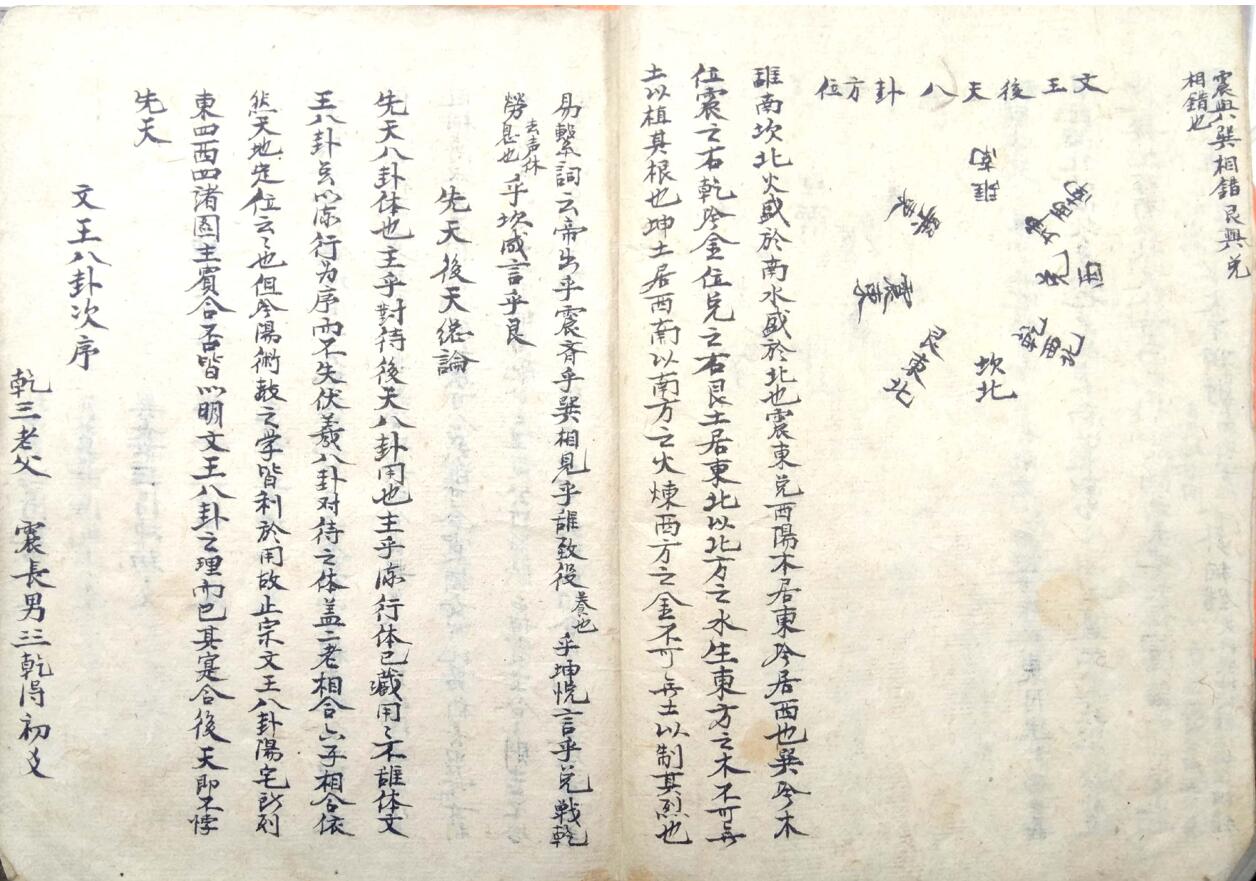 震與巽相錯艮與兑
相錯也
文王後天八卦方位
離南
坤西南
兑西
乾西北
坎北
艮東北
震東
巽東
離南坎北火盛於南水盛於北也震東兑西陽木居東金居西也巽木
位震之右乾金位兑之右艮土居東北以北方之水生東方之木不可無
土以植其根也坤土居西南以南方之火煉西方之金不可無土以制其烈也
易繫詞云帝出乎震齊乎巽相見乎離致役養也乎坤悦言乎兑戰乾
勞去声休息也乎坎成言乎艮
先天後天總論
先天八卦体也主乎對待後天八卦用也主乎流行体已藏用〻不離体文
王八卦云以流行为序而不失伏羲八卦对待之体盖二老相合六子相合依
然天地定位云〻也但今陽術数之学皆利於用故止宗文王八卦陽宅所列
東四西四諸图主賓合否皆以明文王八卦之理而已其寔合後天即不悖
先天
文王八卦次序
乾三老父 震長男三乾得初爻